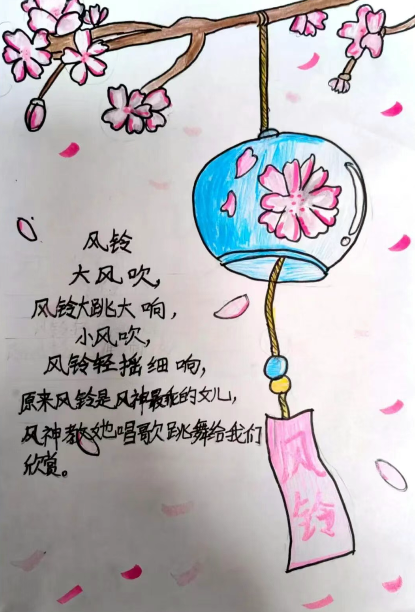 风铃
大风吹，
风铃大跳大响，
小风吹，
风铃轻摇细响，
原来风铃是风神最乖的女儿，
风神教她唱歌跳舞给我们
欣赏。
风铃